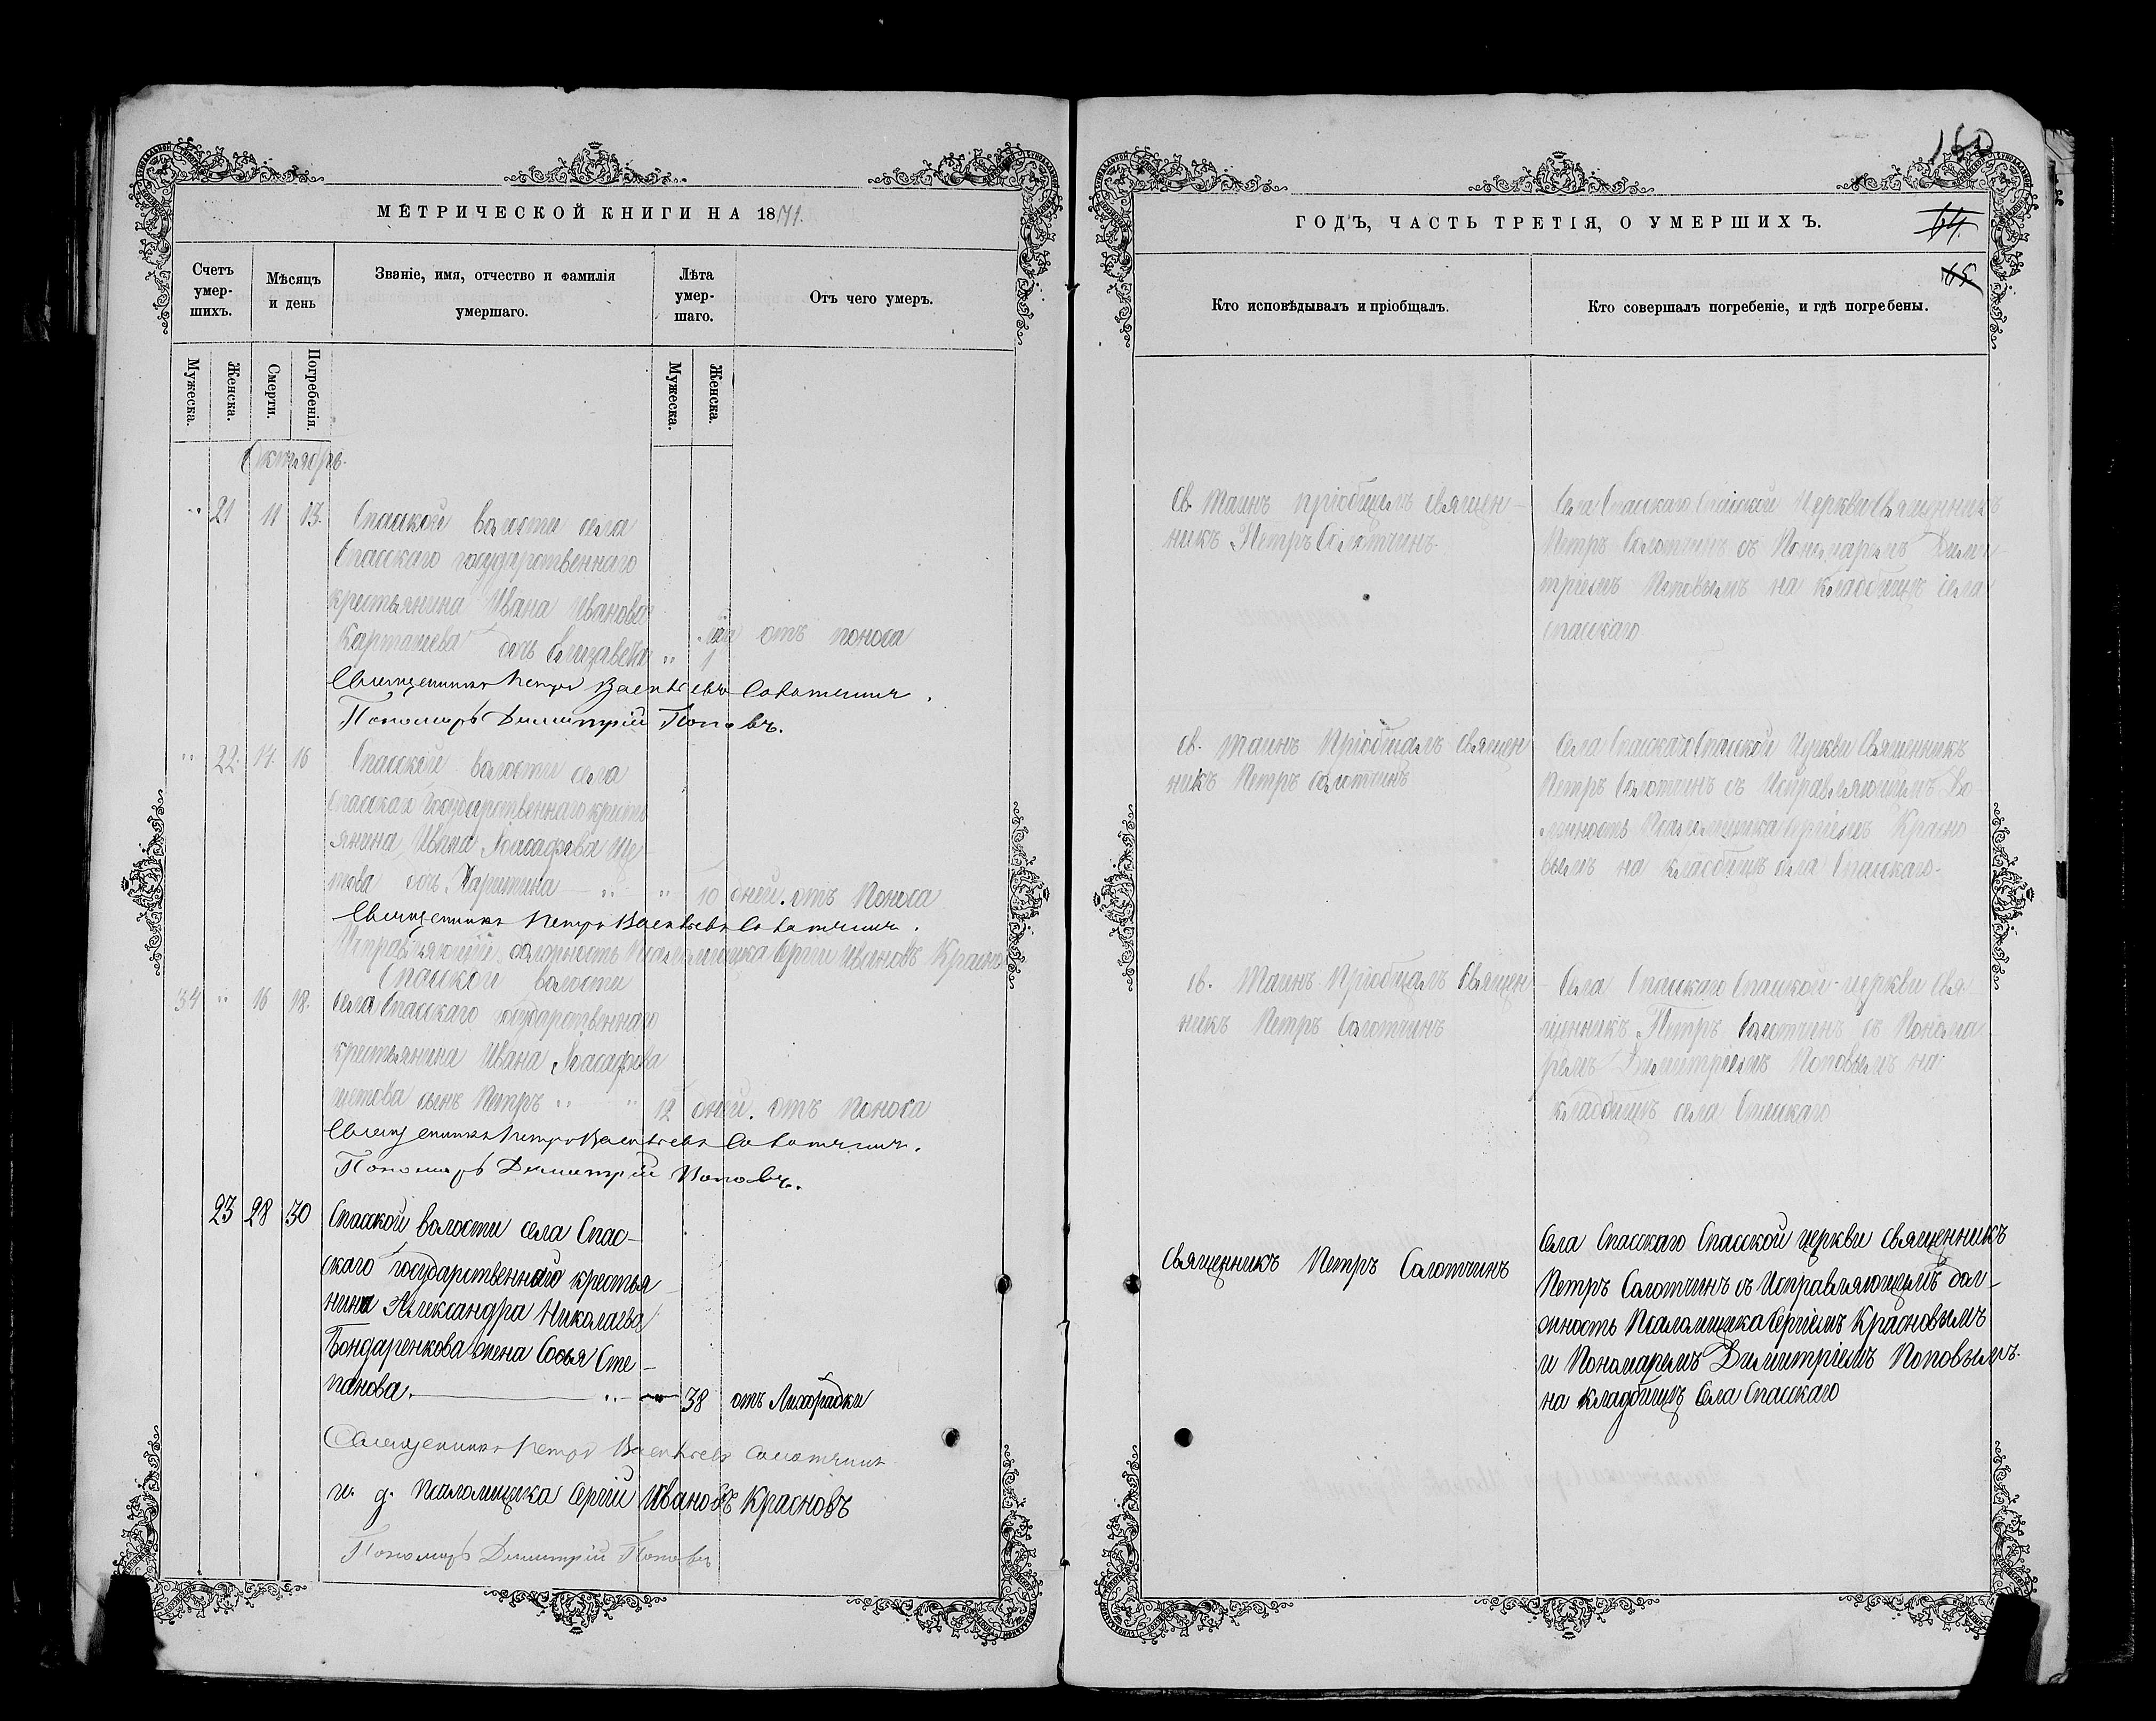 МЕТРИЧЕСКОЙ КНИГИ НА 1871.
Счетъ умер-шихъ.
Мѣсяцъ и день
Званіе, имя, отчество и фамилія умершаго.
Лѣта умер-шаго.
Отъ чего умеръ.
Мужеска.
Женска.
Смерти.
Погребенія.
Мужеска.
Женска.
Октябрь.
21 11 13. Спасской волости села
Спасскаго государственнаго
крестьянина Ивана Иванова
Карташева дочь Елизавета 1 отъ поноса
Священникъ Петръ Васильевъ Солотчинъ.
Пономарь Димитрій Поповъ.
22. 14. 16 Спасской волости села
Спасскаго Государственнаго кресть
янина Ивана Иоасафова Ще-
това дочь Харитина 10 дней. отъ Поноса
Священникъ Петръ Васильевъ Солотчинъ.
Исправляющій должность Псаломщика Сергій Ивановъ Красно
Спасской волости
34 16 18. села Спасскаго государственнаго
крестьянина Ивана Иоасафова
щетова сынъ Петръ 12 дней. отъ Поноса
Священникъ Петръ Васильевъ Солотчинъ.
Пономарь Димитрій Поповъ.
23 28 30 Спасской волости села Спас-
скаго государственнаго крестья-
нина Александра Николаева
Бондаренкова жена Софья Сте-
панова. 38 отъ Лихорадки
Священникъ Петръ Васильевъ Солотчинъ
и. д. Псаломщика Сергій Ивановъ Красновъ
Пономарь Димитрій Поповъ
160
ГОДЪ, ЧАСТЬ ТРЕТІЯ, О УМЕРШИХЪ.
64.
65
Кто исповѣдывалъ и пріобщалъ.
Кто совершалъ погребеніе, и гдѣ погребены.
Св. Таинъ пріобщалъ Священ-
никъ Петръ Солотчинъ.
Села Спасскаго Спасской Церкви Священникъ
Петръ Солотчинъ съ Пономаремъ Дими-
тріемъ Поповымъ на кладбищѣ села
Спасскаго
св. Таинъ Пріобщалъ Священ
никъ Петръ Солотчинъ
Села Спасскаго Спасской Церкви Священникъ
Петръ Солотчинъ съ Исправляющимъ До-
лжность Псаломщика Сергіемъ Красно
вымъ на кладбищѣ села Спасскаго.
св. Таинъ Пріобщалъ Священ-
никъ Петръ Солотчинъ
Села Спасскаго Спасской церкви Свя-
щенникъ Петръ Солотчинъ съ Понома
ремъ Димитріемъ Поповымъ на
кладбищѣ села Спасскаго
Священникъ Петръ Солотчинъ
Села Спасскаго Спасской церкви священникъ
Петръ Солотчинъ съ Исправляющимъ дол-
жность Псаломщика Сергіемъ Красновымъ
и Пономаремъ Димитріемъ Поповымъ.
на кладбищѣ Села Спасскаго